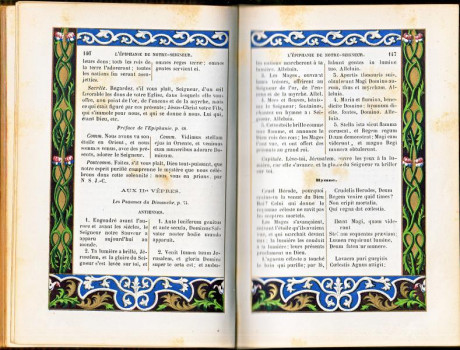 146 L'ÉPIPHANIE DE NOTRE-SEIGNEUR.
leurs dons; tous les rois de
la terre l'adoreront; toutes
les nations lui seront assu-
jetties.
omnes reges terræ; omnes
gentes servient ei.
Secrète. Regardez, s'il vous plaît, Seigneur, d'un œil
favorable les dons de votre Église, dans lesquels elle vous
offre, non point de l'or, de l'encens et de la myrrhe, mais
celui qui est figuré par ces présents: Jésus-Christ votre Fils,
qui s'immole pour nous, et qui se donne à nous. Lui qui,
étant Dieu, etc.
Préface de l'Épiphanie, p.
Comm. Nous avons vu son
étoile en Orient, et nous
sommes venus, avec des pré-
sents, adorer le Seigneur.
Comm. Vidimus stellam
ejus in Oriente, et venimus
cum muneribus adorare Do-
minum.
Postcomm. Faites, s'il vous plaît, Dieu tout-puissant, que
notre esprit purifié comprenne le mystère que nous célé-
brons dans cette solennité; nous vous en prions, par
N. S. J.-C.
AUX IIes VÊPRES.
Les Psaumes du Dimanche, p. 71.
ANTIENNES.
1. Engendré avant l'au-
rore et avant les siècles, le
Seigneur notre Sauveur a
apparu aujourd'hui au
monde.
2. Ta lumière a brillé, Jé-
rusalem, et la gloire du Sei-
gneur s'est levée sur toi, et
1. Ante luciferum genitus
et ante sæcula, Dominus Sal-
vator noster hodie mundo
apparuit.
2. Venit lumen tuum Jeru-
salem, et gloria Domini
super te orta est; et ambu-
L'ÉPIPHANIE DE NOTRE-SEIGNEUR. 147
les nations marcheront à ta
lumière. Alleluia.
3. Les Mages, ouvrant
leurs trésors, offrirent au
Seigneur de l'or, de l'en-
cens et de la myrrhe. Allel.
4. Mers et fleuves, bénis-
sez le Seigneur; fontaines,
chantez un hymne à
Seigneur. Alleluia.
5. Cette étoile brille comme
une flamme, et annonce le
Dieu roi des rois; les Mages
l'ont vue, et ont offert des
présents au grand roi.
lumine
tuo. Alleluia.
3. Apertis thesauris suis,
obtulerunt Magi Domino au-
rum, thus et myrrham. Alle-
luia.
4. Maria et flumina, bene-
dicite Domino; hymnum di-
cite, fontes, Domino. Alle-
luia.
5. Stella ista sicut flamma
coruscat, et Regem regum
Deum demonstrat; Magi eam
viderunt, et magno Regi
munera obtulerunt.
Capitule. Lève-toi, Jérusalem, ouvre les yeux à la lu-
mière, car elle s'avance, et la gloire du Seigneur va briller
sur toi.
Hymne.
Cruel Hérode, pourquoi
crains-tu la venue du Dieu
Roi? Celui qui donne le
royaume céleste ne ravit pas
les sceptres mortels.
Les Mages s'avançaient,
suivant l'étoile qu'ils avaient
vue, et qui marchait devant
eux; la lumière les conduit
à la lumière; leurs présents
proclament un Dieu.
L'agneau céleste a touché
le bain qui purifie; par là,
Crudelis Herodes, Deum
Regem venire quid times?
Non eripit mortalia,
Qui regna dat cœlestia.
Ibant Magi, quam vide-
rant
Stellam sequentes præviam:
Lumen requirunt lumine,
Deum fatentur munere.
Lavacra puri gurgitis
Cœlestis Agnus attigit;